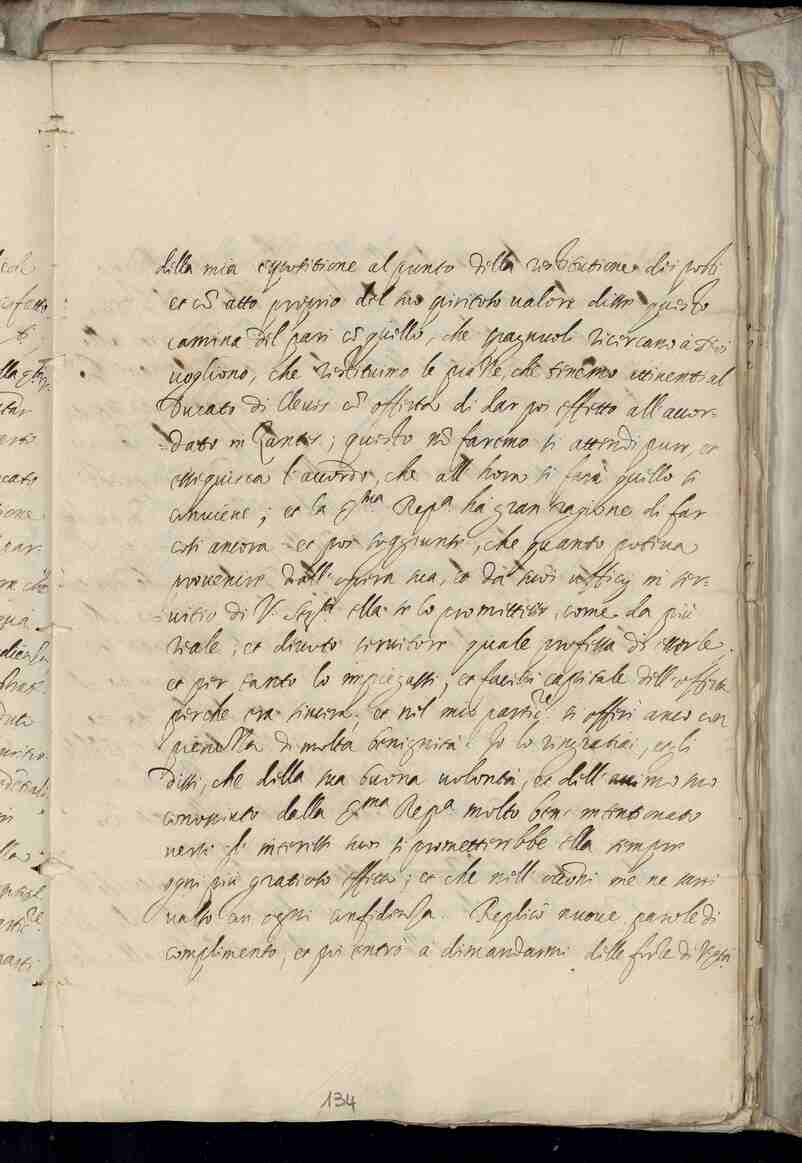 della mia espositione al punto della restitutione dei posti
et cõ atto proprio del suo spiritoso valore disse questo
camina del pari cõ quello, che spagnuoli ricercano à noi
vogliono, che restituimo le piazze, che tenemo attinenti al
Ducato di Cleves cõ offerta di dar poi effetto all'accor-
dato in Santes; questo nõ faremo si attendi pure, et
esseguisca l'accordo, che all'hora si farà quello si
conviene; et la Ser.ma Rep.ca ha gran ragione di far
cosi ancora et poi soggiunse, che quanto poteva
provenire dall'opera sua, et da suoi ufficij in ser-
vitio di V. Ser.tà ella se lo promettesse, come da più
reale, et divoto servitore quale professa di esserle.
et per tanto lo impiegassi, et facessi capitale dell'offerta
perche era sincera; et nel mio partic.re si offerì anco con
pienezza di molta benignità. Io lo ringratiai, et gli
dissi, che della sua buona volontà, et dell'animo suo
conosciuto dalla Ser.ma Rep.ca molto bene intentionato
verso gl'interessi suoi si prometterebbe ella sempre
ogni più gratioso effetto; et che nell'occ.oni me ne sarei
valso con ogni confidenza. Replicò nuove parole di
complimento, et poi entrò à dimandarmi delle forze di V. Ser.tà
134